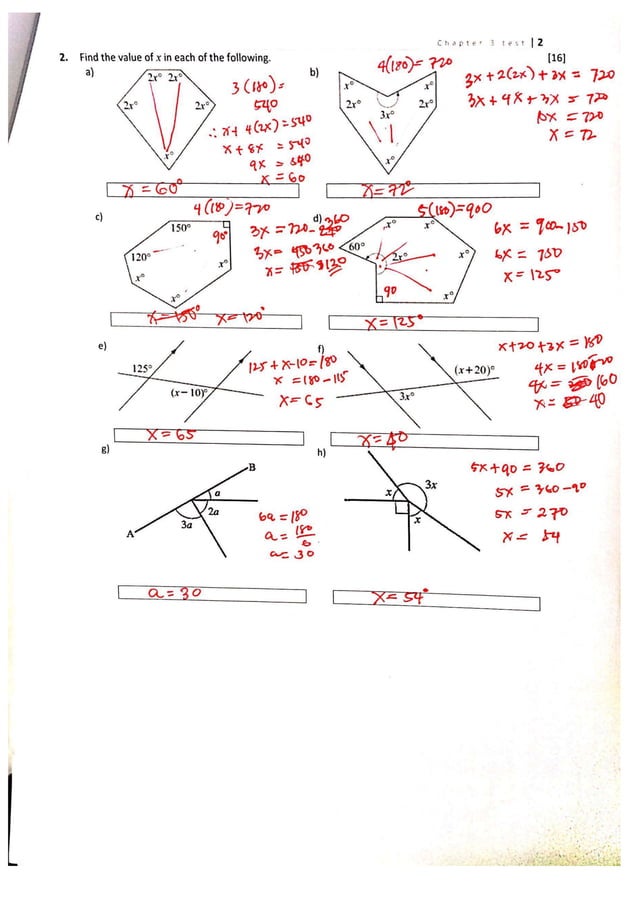 Chapter 3 test | 2
2. Find the value of x in each of the following. [16]
a)
2x° 2x°
2x° 2x°
x°
3(180)=
540
∴ x+ 4(2x)=540
x+8x = 540
9x = 540
x = 60
x = 60°
b)
4(180)= 720
x° x°
2x° 2x°
3x°
x°
3x+2(2x)+3x = 720
3x+4x+3x = 720
10x = 720
x = 72
x=72°
c)
4(180)=720
150°
90°
120°
x° x°
x°
3x=720-360
3x= 360
x= 120
x=150° x=120°
d)
5(180)=900
x° x°
60°
2x° x°
90 x°
6x = 900-150
6x = 750
x = 125°
x=125°
e)
125°
(x−10)°
125+x-10=180
x =180-115
x= 65
x=65
f)
(x+20)°
3x°
x+20+3x = 180
4x = 180-20
4x = 160
x= 40
x=40
g)
B
a
2a
3a
A
6a=180
a= 180
6
a= 30
a = 30
h)
3x
x
x
5x+90 = 360
5x = 360-90
5x = 270
x = 54
x= 54°